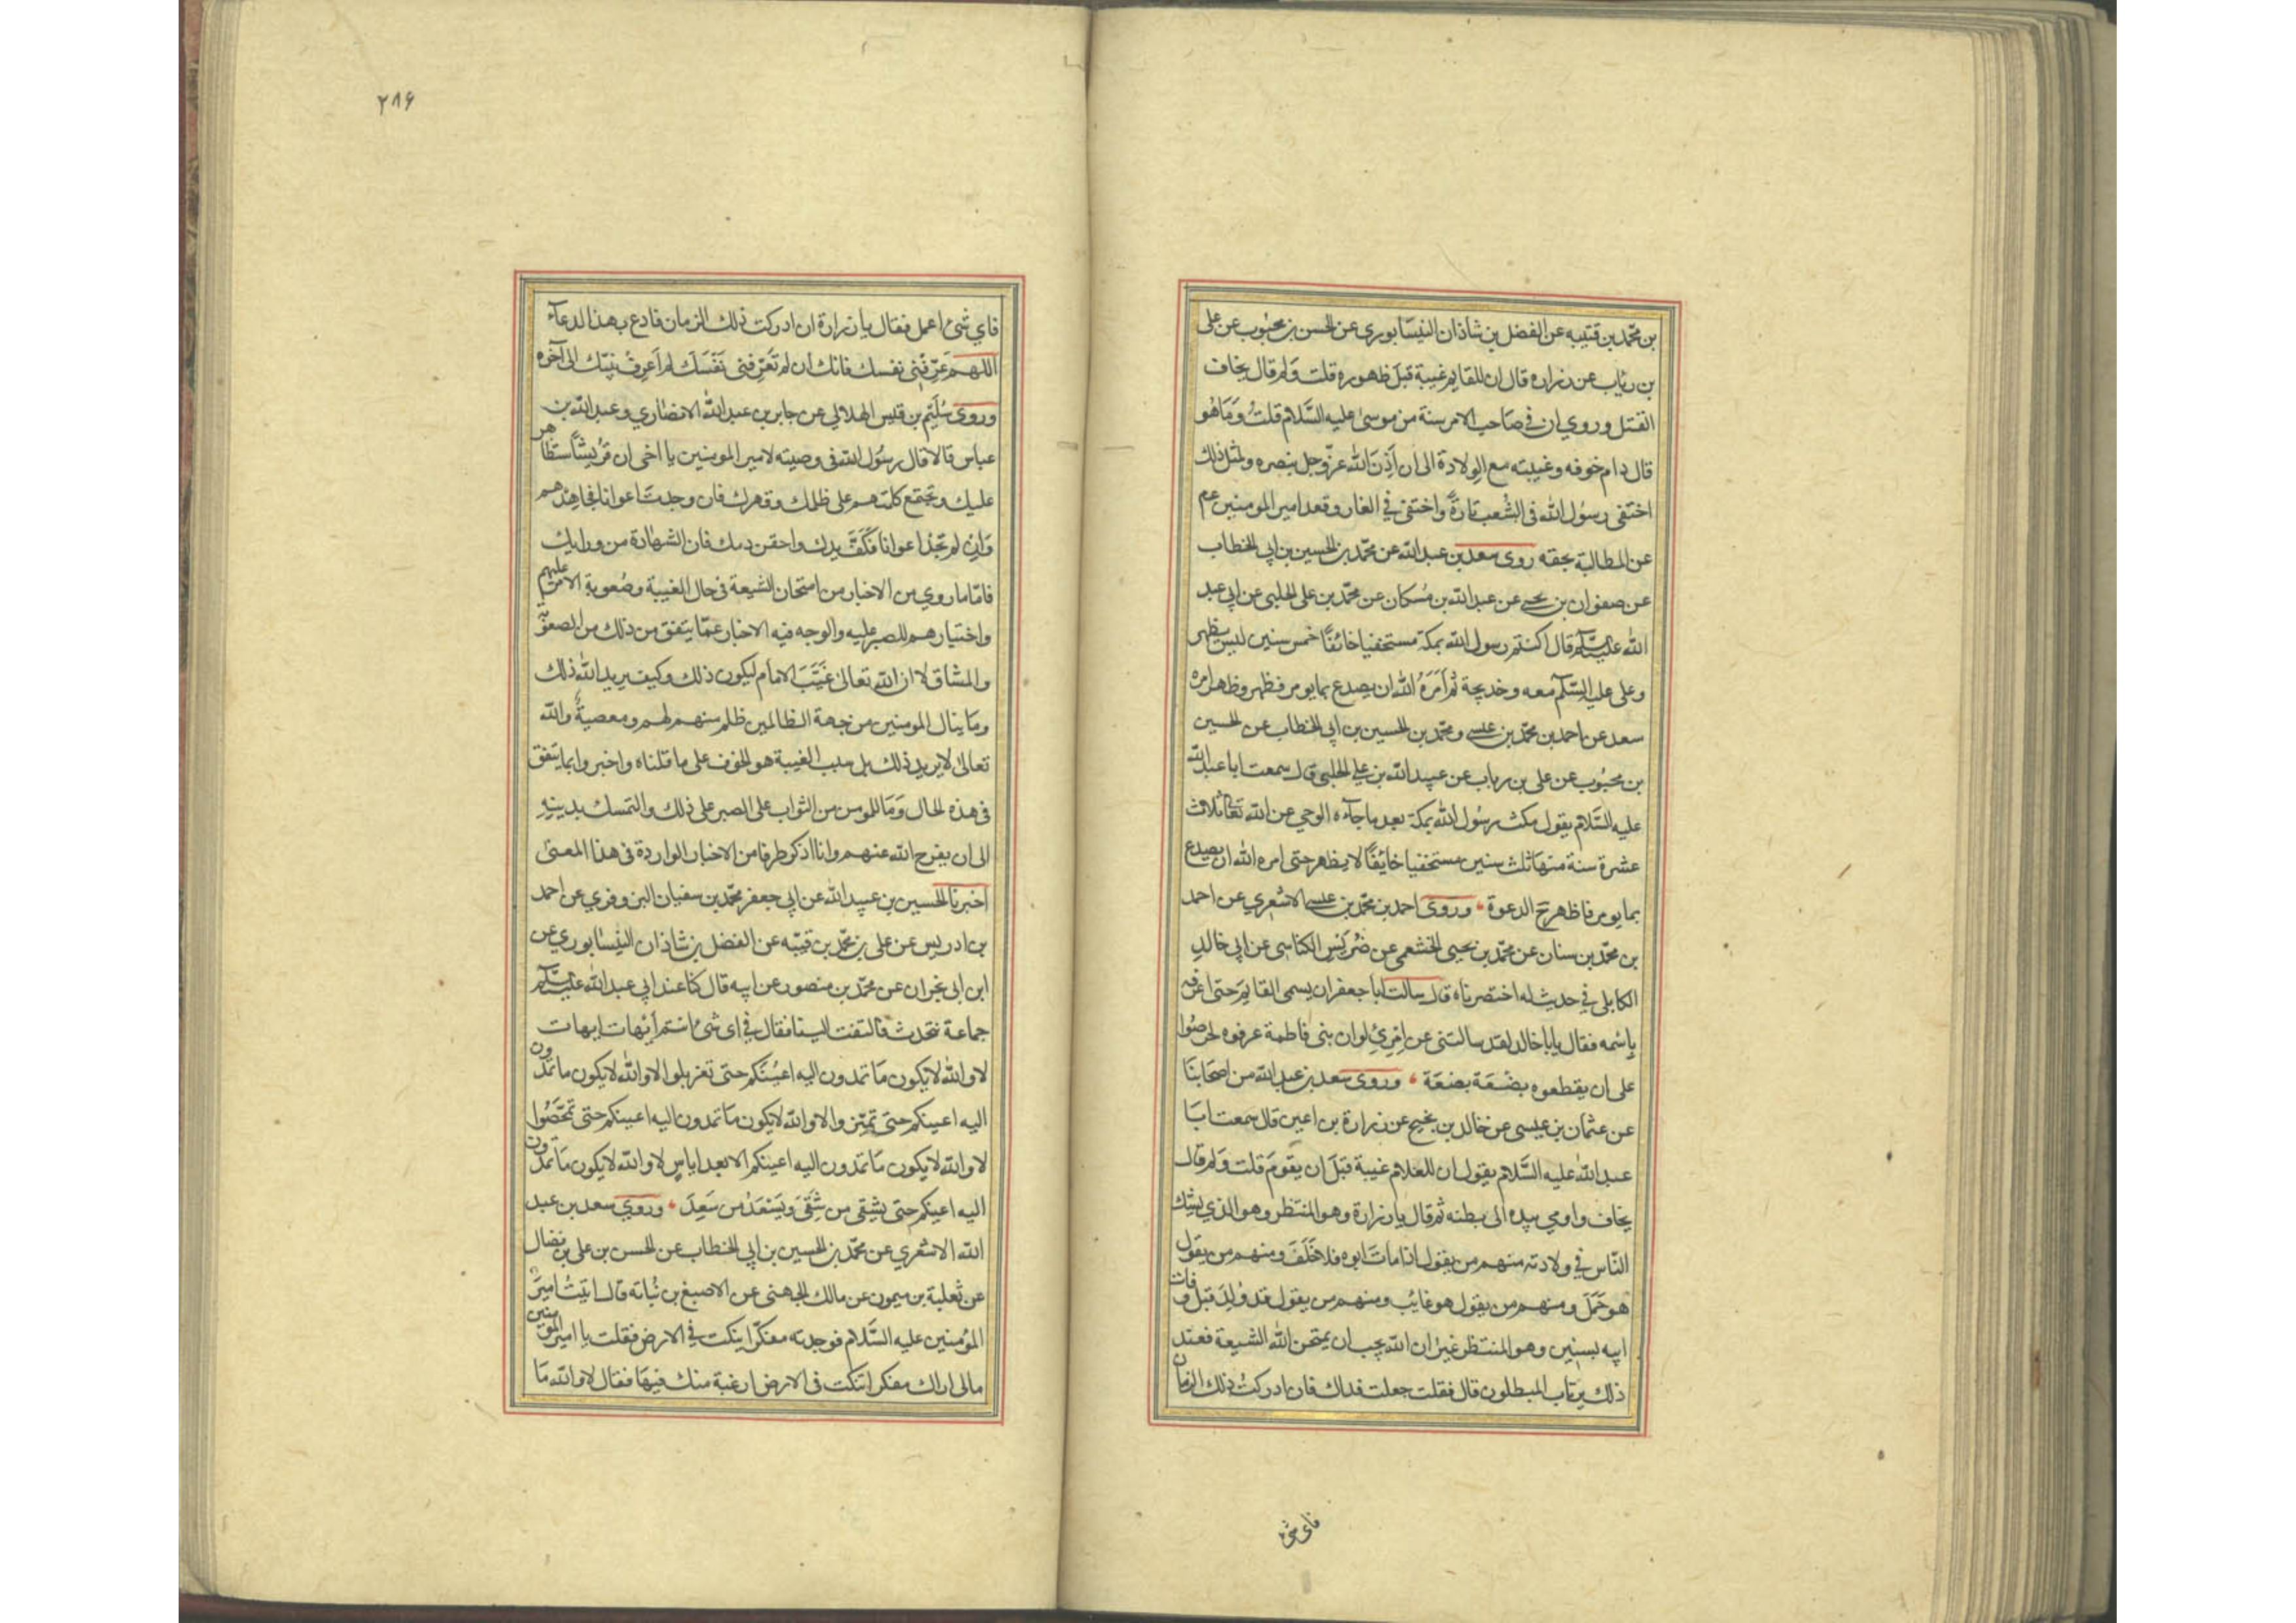 بن محمّد بن قتيبه عن الفضل بن شاذان النيسابوري عن الحسن بن محبوب عن على
بن رئاب عن زراره قال ان للقايم غيبة قبل ظهوره قلت ولم قال يخاف
القتل وروي ان في صَاحب الامر سنة من موسىٰ عليه السَّلام قلتُ وَمَا هُو
قال دام خوفه وغيبته مع الوِلادة الى ان اَذِنَ الله عزّوجل بنصره ولمثل ذلك
اختفى رسُول الله فى الشعب تارةً واختفى في الغار وقعد امير المومنين عم
عن المطالبة بحقه روى سعد بن عبد الله عن محمّد بن الحسين بن ابي الخطاب
عن صفوان بن يحيى عن عبد الله بن مُسكان عن محمّد بن على الحلبى عن ابي عبد
الله عليه السّلم قال اكتتم رسول الله بمكة مستخفيا خائفًا خمس سنين ليس يظهر
وعلى عليه السّلم معه وخديجة ثم اَمَرَهُ الله ان يصدع بما يومر فظهر وظهر امره
سعد عن احمد بن محمّد بن عيسى ومحمّد بن الحسين بن ابي الخطاب عن الحسين
بن محبُوب عن على بن رياب عن عبيد الله بن علي الحلبى قال سمعت ابا عبد الله
عليه السَّلام يقول مكث رسُول الله بمكة بعد ما جآءه الوحي عن الله تعالى ثلاث
عشرة سنة منها ثلث سنين مستخفيا خايُفًا لا يظهر حتى امره الله ان يصدع
بما يومر فاظهر ح الدعوة وروى احمد بن محمّد بن عيسى الاشعري عن احمد
بن محمّد بن سنان عن محمّد بن يحيى الخثعمى عن ضُريس الكناسى عن ابي خالد
الكابلى في حديث له اختصرناه قال سالت ابا جعفر ان يسمى القايم حتى اعرفه
باسمه فقال يابا خالد لقد سالتنى عن امرئ لو ان بنى فاطمة عرفوه لحرصُوا
على ان يقطعوه بضْعَة بضعَة وروى سعد بن عبد الله من اصحَابنَا
عن عثمان بن عيسى عن خالد بن نجيح عن زرارة بن اعين قال سمعت ابَا
عبد الله عليه السَّلام يقول ان للغلام غيبة قبَل ان يقومَ قلت وَلم قال
يخاف واومى بيده الى بطنه ثم قال يا زرارة وهو المنتظر وهو الذي يشك
النّاس في ولادته منهم من يقول اذا ماتَ ابوه فلا خَلَفَ ومنهم من يقول
هو حَمَل ومنهم من يقول هو غايُب ومنهم من يقول قد وُلِدَ قبل وفات
ابيه بسنين وهو المنتظر غيرَ ان الله يجب ان يمتحن الله الشيعة فعند
ذلك يرتاب المبطلون قال فقلت جعلت فداك فان ادركتُ ذلك الزمان
فاى شئ
٢٨۶
فاي شئ اعمل فقال يا زرارة ان ادركت ذلك الزمان فادع بهذ الدعآء
اللهم عَرّفْنى نفسك فانك ان لم تعَرّفنى نَفْسَكَ لم اَعرِف نبيّك الى آخره
وروى سُلَيْم بن قيس الهلالي عن جابر بن عبد الله الانصَاري وعبد الله بن
عباس قالا قال رسُول الله فى وصيته لامير المومنين يا اخى ان قُريشًا ستظاهر
عليك وتجتمع كلمتهم على ظلمك وقهرك فان وجدتَ اعوانا فجاهِدْهم
وَان لم تجدْ اعوانا فَكُفَّ يدك واحقن دمك فان الشهادة من ورايك
فامّا ما روي من الاخبار من امتحان الشيعة فى حال الغيبة وصُعوبة الامر عليهم
واختيارهم للصبر عليه والوجه فيه الاخبار عمّا يتفق من ذلك من الصعوبة
والمشاق لا ان الله تعالىٰ غَيَّبَ الامام ليكون ذلك وكيف يريد الله ذلك
ومَا ينال المومنين من جهة الظالمين ظلم منهم لهم ومعصيةٌ والله
تعالىٰ لا يريد ذلك بل سبب الغيبة هو الخوف على ما قلناه واخبروا بما يتفق
فى هذه الحال وَمَا للمومن من الثواب على الصبر على ذلك والتمسك بدينِهِ
الى ان يفرج الله عنهم وانا اذكر طرفا من الاخبار الواردة فى هذا المعنىٰ
اخبرنا الحسين بن عبيد الله عن ابي جعفر محمّد بن سفيان البزوفري عن احمد
بن ادريس عن على بن محمّد بن قتيبَه عن الفضل بن شاذان النيسَابوري عن
ابن ابى نجران عن محمّد بن منصور عن ابيه قال كنا عند ابي عبد الله عليه السّلم
جماعة نتحدث فالتفت الينا فقال في اى شئ انتم اَيْهات ايهات
لا والله لا يكون مَا تمدون اليه اعينكم حتى تغربلوا لا والله لا يكون ما تمدّون
اليه اعينكم حتى تميّزوا لا والله لا يكون ما تمدون اليه اعينكم حتى تمحّصُوا
لا والله لا يكون مَا تمدون اليه اعينكم الا بعد اياسٍ لا والله لا يكون مَا تمدّون
اليه اعينكم حتى يشقى من شَقَى وَيَسْعَدُ من سَعِدَ وروي سعد بن عبد
الله الاشعري عن محمّد بن الحسين بن ابي الخطاب عن الحسن بن على بن فضال
عن ثعلبة بن ميمون عن مالك الجهنى عن الاصبغ بن نُباته قال اتيتُ اميرَ
المؤمنين عليه السَّلام فوجدته مفكّرا ينكت في الارض فقلت يا امير المومنين
مالى اراك مفكرا تنكت فى الارض ارغبة منك فيهَا فقال لا والله مَا